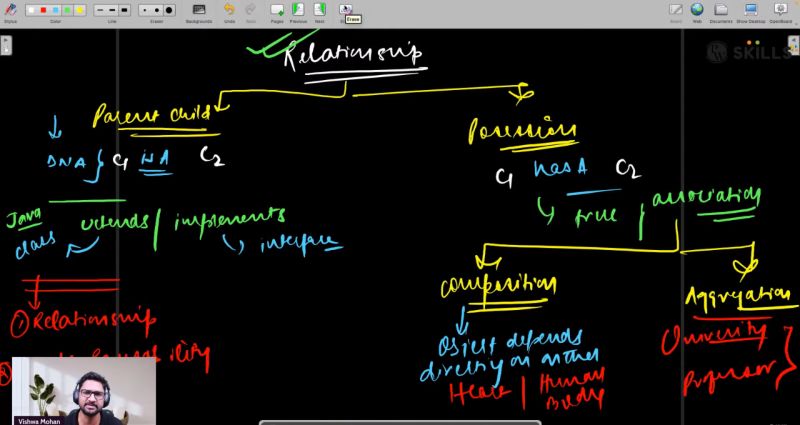 Stylus
Color
Line
Eraser
Backgrounds
Undo
Redo
Pages
Previous
Next
Erase
Board
Web
Documents
Show Desktop
OpenBoard
SKILLS
Relationship
Parent Child
Possession
DNA } C1 IS A C2
C1 has A C2
Java
class
extends | implements
interface
true | association
Composition
Aggregation
① Relationship
Object depends
directly on another
Heart | Human
Body
University
Professor
Vishwa Mohan